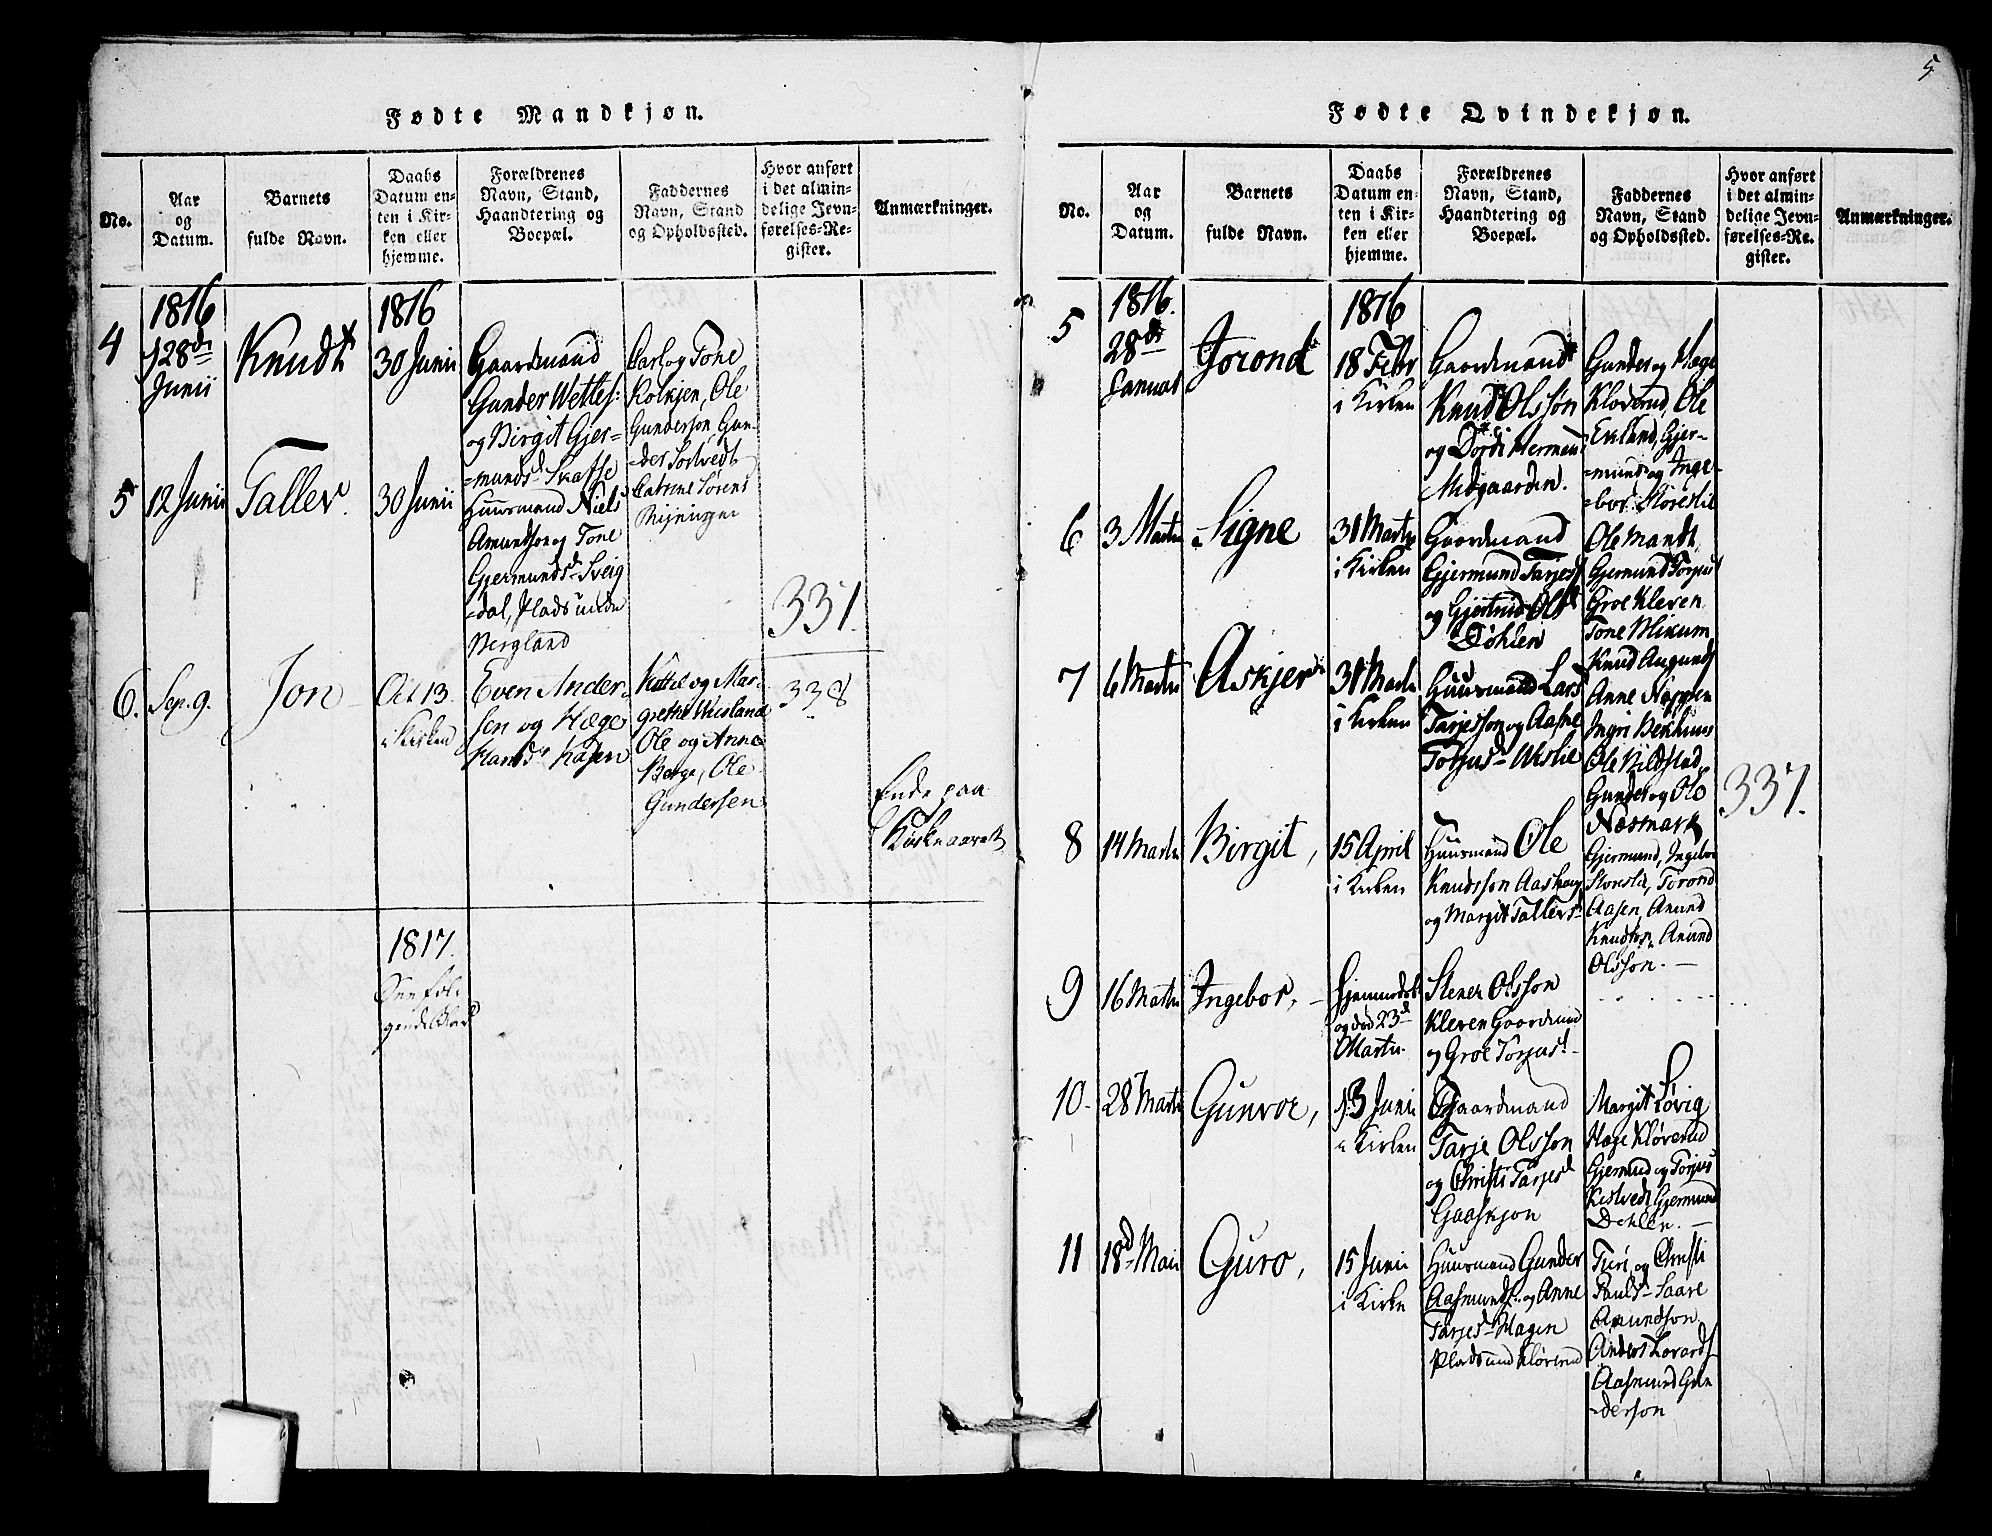 5
Fødte Mandkjøn.
No.
Aar
og
Datum.
Barnets
fulde Navn.
Daabs
Datum en-
ten i Kir-
ken eller
hjemme.
Forældrenes
Navn, Stand,
Haandtering og
Boepæl.
Faddernes
Navn, Stand
og Opholdssted.
Hvor anført
i det almin-
delige Jevn-
førelses-Re-
gister.
Anmærkninger.
1816
1816
4
28de
Junii
Knudt
30 Junii
Gaardmand
Gunder Wetles=
og Birgit Gjer=
=mundsd Svafse
og Tone
Kolkjen, Ole
Gunderson Gun-
=der Sostvedt
Catrine Sørens
5
12 Junii
Tallev.
30 Junii
Huusmand Niels
Amundson og Tone
Gjermundsd Sveig
=dal, Plads unde
Bergland
337.
6.
Sep. 9.
Jon
Oct 13.
i Kirken
Even Ander-
sen og Hæge
Hansd Kåsen
Kittel og Mar-
grethe Wiesland
Ole og Anne
Berge, Ole
Gundersen
338
Ende paa
Kirkeaaret
1817.
See føl-
gende Blad
Fødte Qvindekjøn.
No.
Aar
og
Datum.
Barnets
fulde Navn.
Daabs
Datum en-
ten i Kir-
ken eller
hjemme.
Forældrenes
Navn, Stand,
Haandtering og
Boepæl.
Faddernes
Navn, Stand
og Opholdssted.
Hvor anført
i det almin-
delige Jevn-
førelses-Re-
gister.
Anmærkninger.
1816.
1816
5
28de
Januar
Jorond
18 Febr
i Kirken
Gaardmand
Knud Olssøn
og Dordi Herman
Midgaarden.
Gunder og Hæge
Kloverud, Ole
Eklund, Gjer-
=mund og Inge-
=bor Storeslie
6
3 Martii
Signe
31 Martii
i Kirken
Gaardmand
Gjermund Tarjess
og Gjertrud Olsd
Døhlen
Ole Mandt,
Gjermund Torjus
Groe Kleven
Tone Mikum
7
6 Martii
Askjer
31 Martii
i Kirken
Huusmand Lars
Tarjesson og Aasne
Torjusd Uvslie
Knud Augunds
Anne Nappen
Ingri Bekhuus
Ole Kildstad,
Gunder og Ole
Næsmark
337.
8
14 Martii
Birgit,
15 April
i Kirken
Huusmand Ole
Knudsson Aashaug
og Margit Tallevsd
Gjermund, Ingebor
Storeslie, Torond
Aasen, Amund
Knudson, Amund
Olsson.
9
16 Martii
Ingebor,
Hjemmedøbt
og død 23d
Martii
Stener Olsson
Kleven Gaardmand
og Groe Torjusd
10.
28 Martii
Gunvor,
13 Junii
i Kirken
Gaardmand
Tarje Olsson
og Christi Tarjesd
Gaaskjon
Margit Løvig
Hæge Kløverud
Gjermund og Torjus
Kostvedt, Gjermund
Dehlen.
11
18d Maii
Guro,
15 Junii
i Kirke
Huusmand Gunder
Aasmunds. og Anne
Tarjesd Hagen
Plads und Kløverud
Turi, og Christi
Paulsd Saare
Amundson,
Anders Lovards
Aasmund Gun
=derson